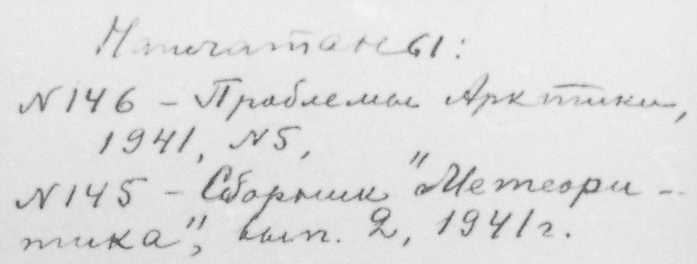 Напечатаны:
N146 – Проблемы Арктики,
1941, N5,
N145 – Сборник "Метеори-
тика", вып. 2, 1941г.